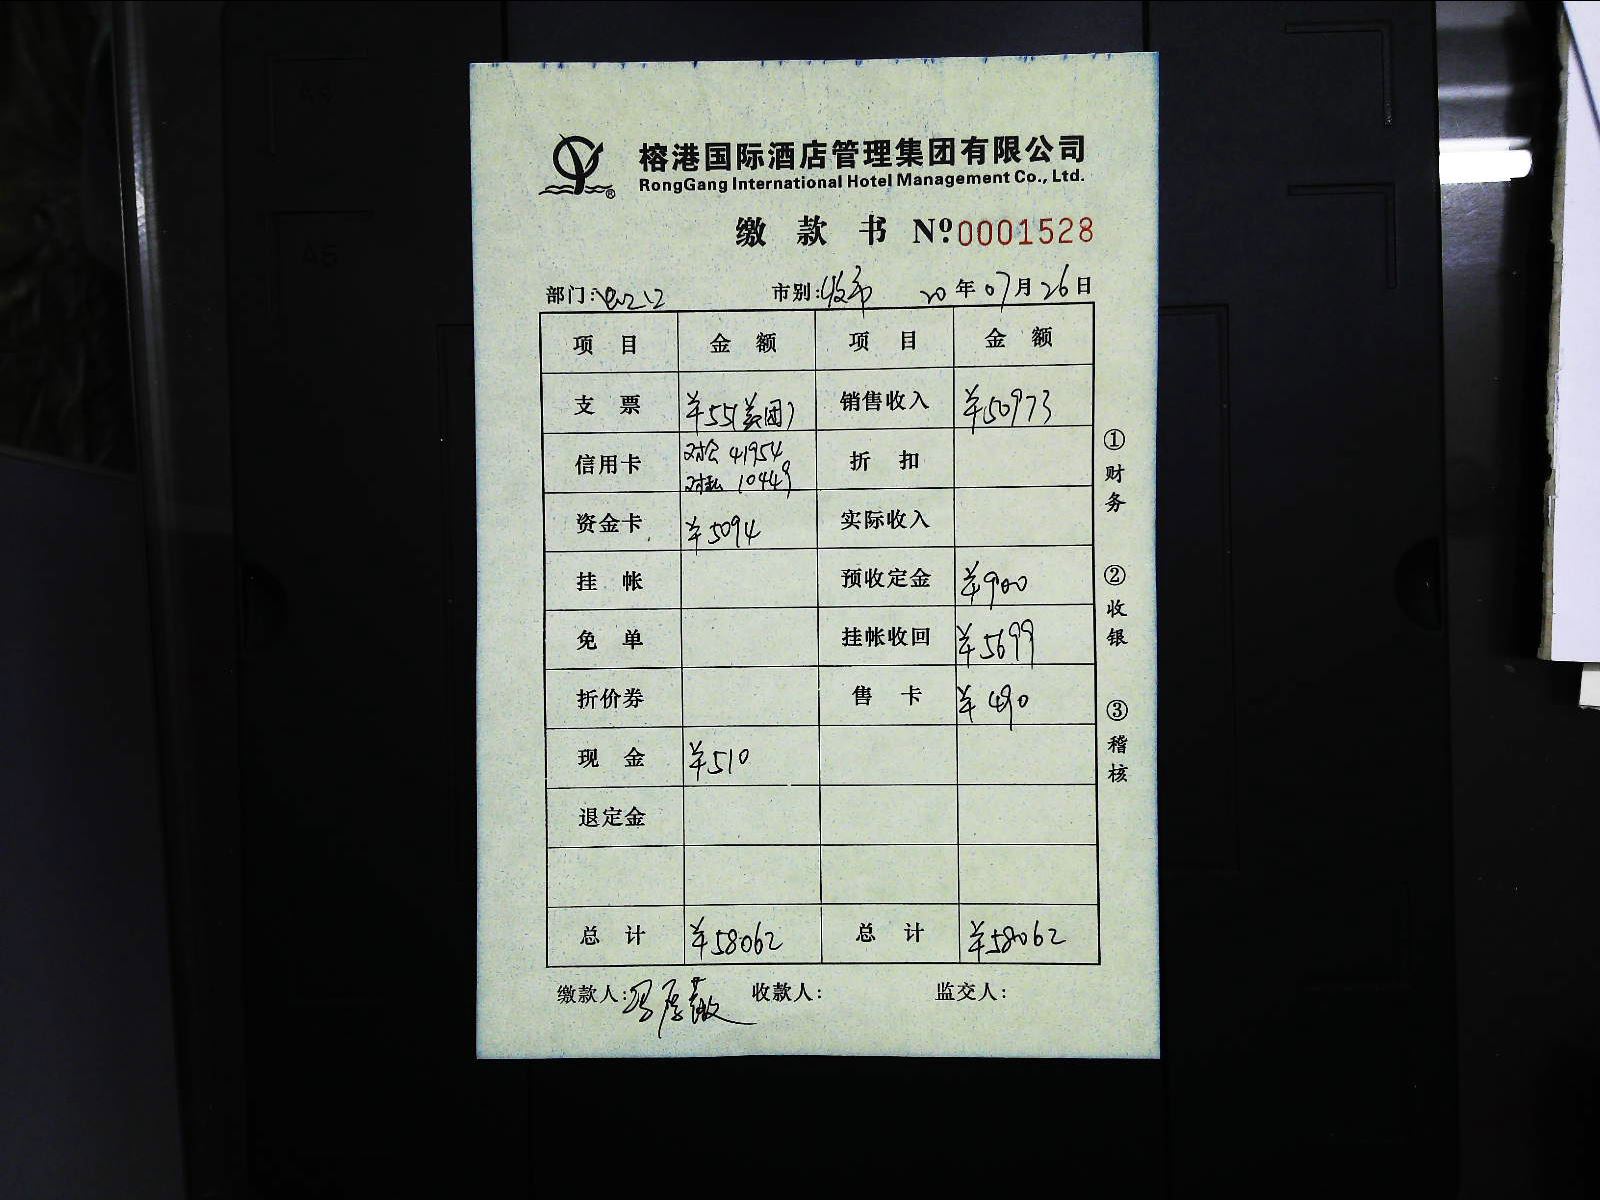 榕港国际酒店管理集团有限公司
RongGang International Hotel Management Co., Ltd.
缴款书 №0001528
部门: 市别:收市 20年07月26日
项目 金额 项目 金额
支票 ¥55(美团) 销售收入 ¥50973
信用卡 对公 41954 折扣
对私 10449
资金卡 ¥5094 实际收入
挂帐 预收定金 ¥900
免单 挂帐收回 ¥5699
折价券 售卡 ¥490
现金 ¥510
退定金
总计 ¥58062 总计 ¥58062
缴款人: 收款人: 监交人:
①财务
②收银
③稽核
A4
A5